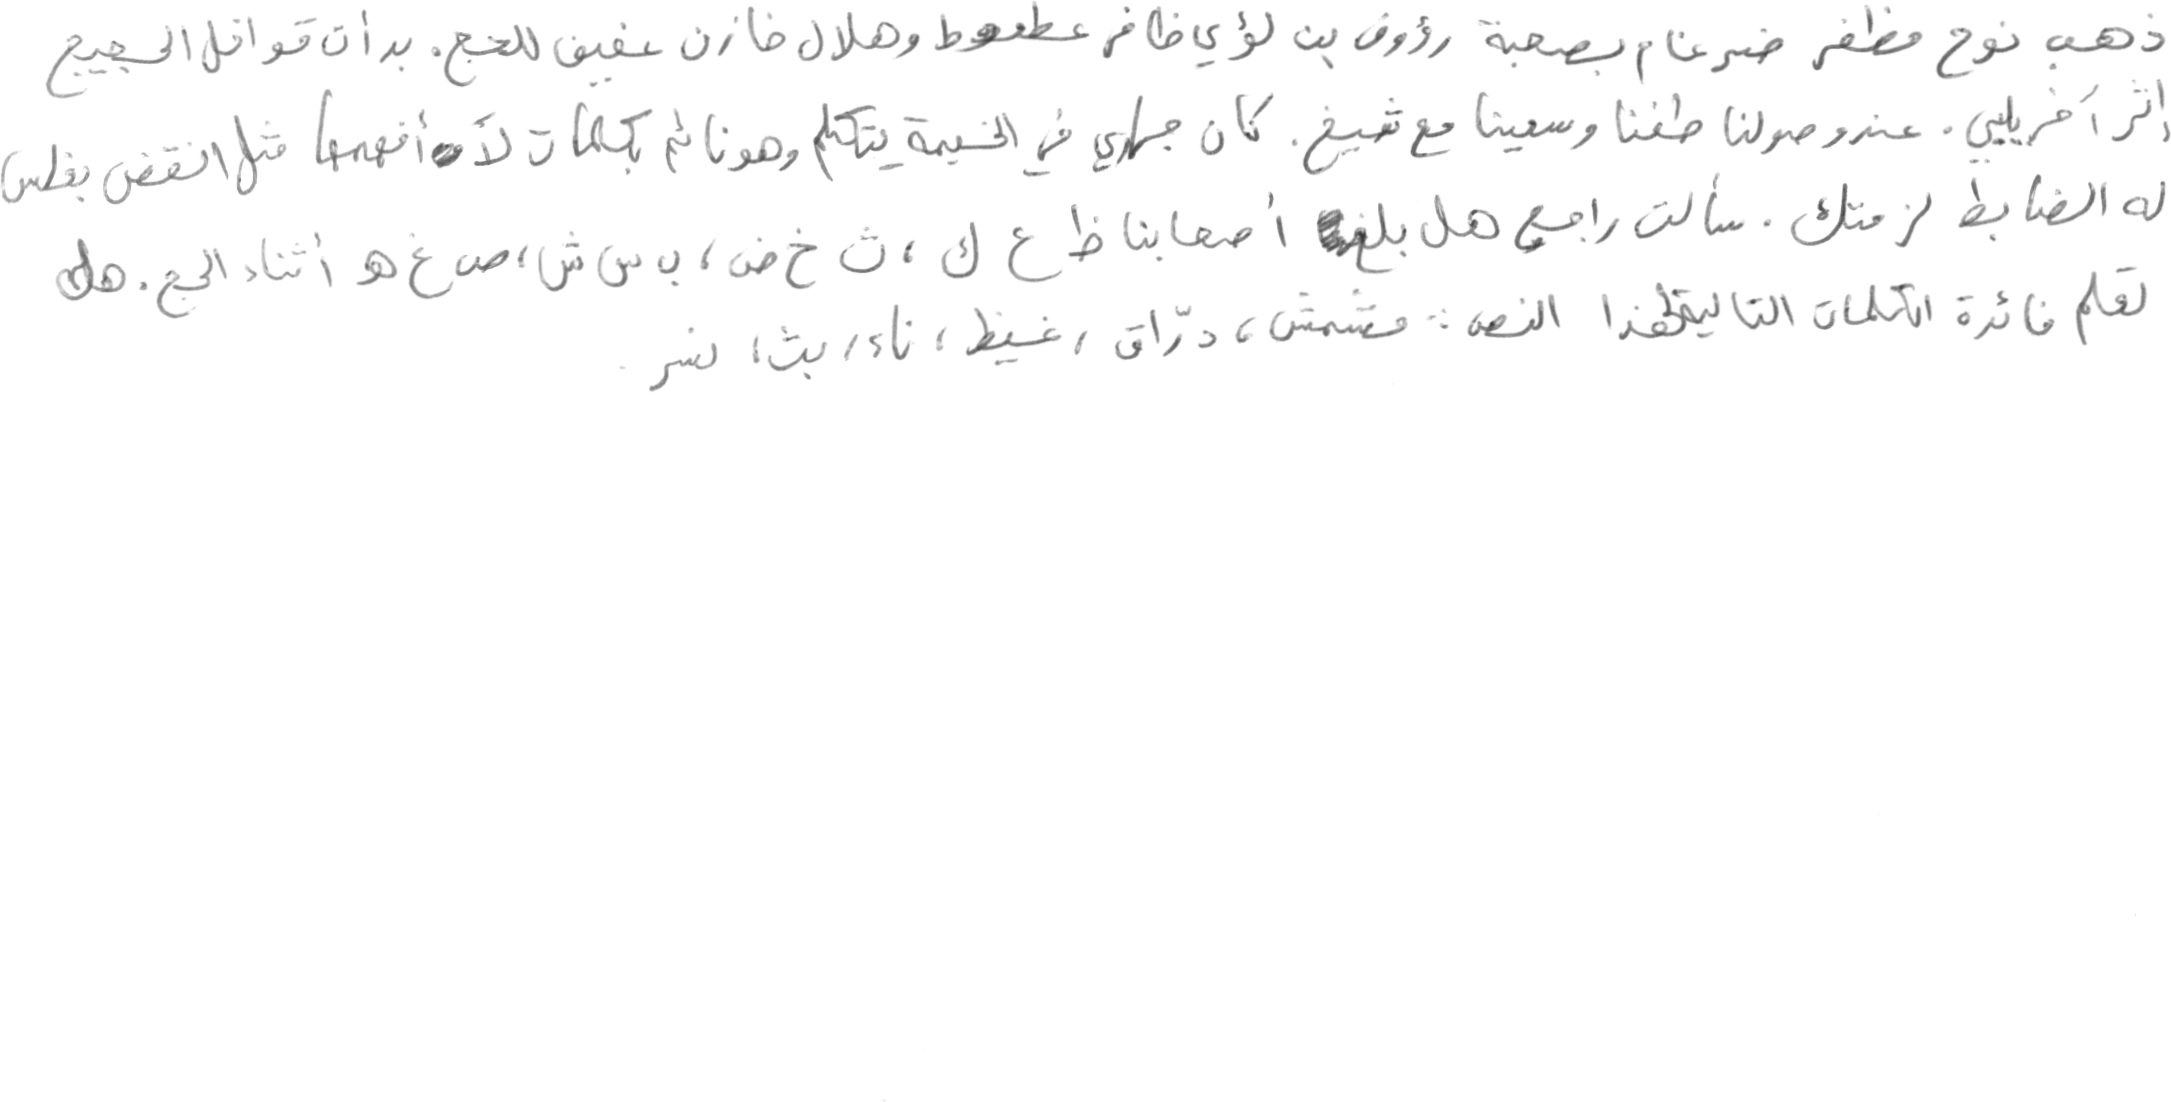 ذهب نوح مظفر ضرغام بصحبة رؤوف بن لؤي ظافر عطعوط وهلال خازن عفيف للحج. بدأت قوافل الحجيج
إثر آخر يلبي. عند وصولنا طفنا وسعينا مع شيخ. كان جاري في الخيمة يتكلم وهو نائم بكلمات لا أفهمها مثل انقض بغلس
له الضابط لزمتك. سألت راجع هل بلغ أصحابنا ظ ع ك ، ث خ ض ، ب س ش ، ص غ هـ أثناء الحج. هل
تعلم فائدة الكلمات التالية لهذا النص : مشمش ، درّاق ، غيظ ، ناء ، بث ، نسر .